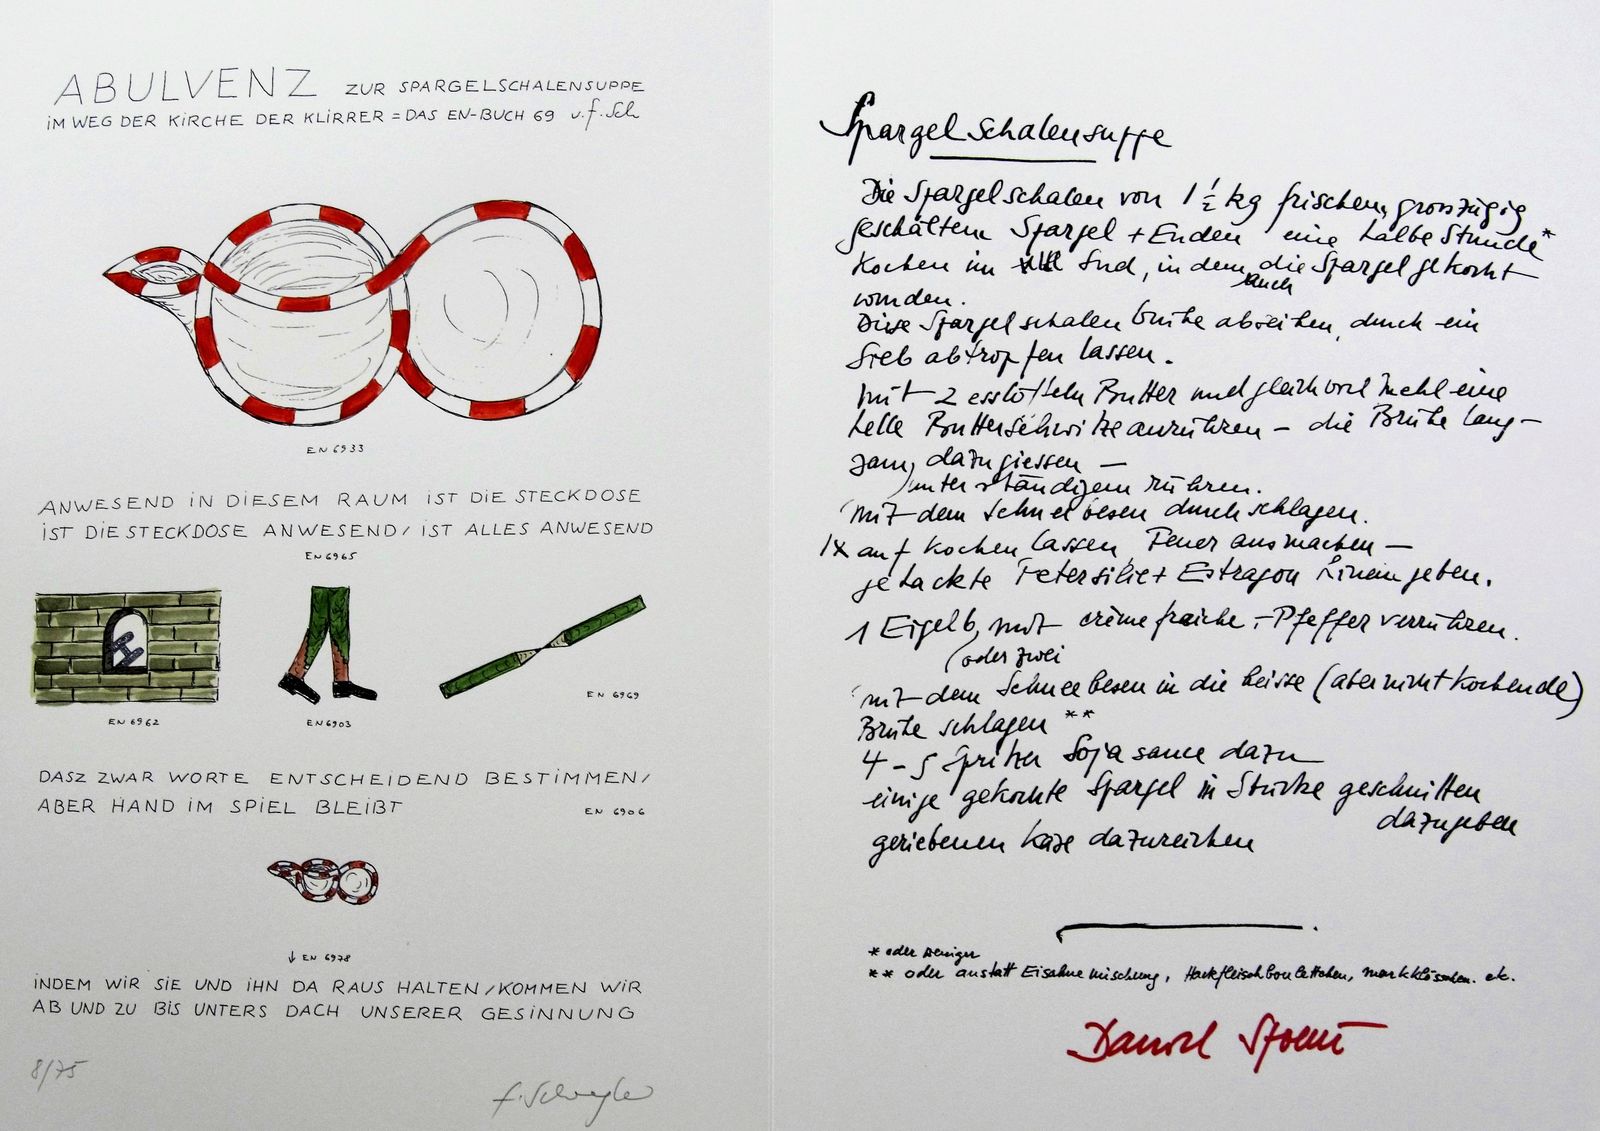 ABULVENZ ZUR SPARGELSCHALENSUPPE
IM WEG DER KIRCHE DER KLIRRER = DAS EN-BUCH 69 v. f. Sch
EN 6933
ANWESEND IN DIESEM RAUM IST DIE STECKDOSE
IST DIE STECKDOSE ANWESEND / IST ALLES ANWESEND
EN 6965
EN 6962
EN 6903
EN 6969
DASZ ZWAR WORTE ENTSCHEIDEND BESTIMMEN /
ABER HAND IM SPIEL BLEIBT
EN 6906
↓ EN 6978
INDEM WIR SIE UND IHN DA RAUS HALTEN / KOMMEN WIR
AB UND ZU BIS UNTERS DACH UNSERER GESINNUNG
8/75
Spargelschalensuppe
Die Spargelschalen von 1 1/2 kg frischem, grosszügig
geschältem Spargel + Enden eine halbe Stunde*
kochen im Sud, in dem auch die Spargel gekocht
wurden.
Diese Spargelschalenbrühe abseihen, durch ein
Sieb abtropfen lassen.
mit 2 esslöffeln Butter und gleichviel Mehl eine
helle Butterschwitze anrühren – die Brühe lang-
sam dazugiessen –
unter ständigem rühren.
mit dem Schneebesen durchschlagen.
1x aufkochen lassen, Feuer ausmachen –
gehackte Petersilie + Estragon hineingeben.
1 Eigelb, mit crème fraiche, – Pfeffer verrühren.
(oder zwei
mit dem Schneebesen in die heisse (aber nicht kochende)
Brühe schlagen **
4 – 5 Spritzer Soja sauce dazu
einige gekochte Spargel in Stücke geschnitten
dazugeben
geriebenen Käse dazureichen
* oder weniger
** oder anstatt Eisahnemischung, Hackfleischboulettchen, markklösschen. etc.
Daniel Spoerri